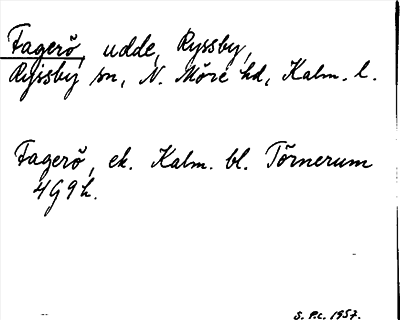 Fagerö, udde, Ryssby,
Ryssby sn, N. Möre hd, Kalm. l.
Fagerö, ek. Kalm. bl. Törnerum
4G9h.
S. P.L. 1957.